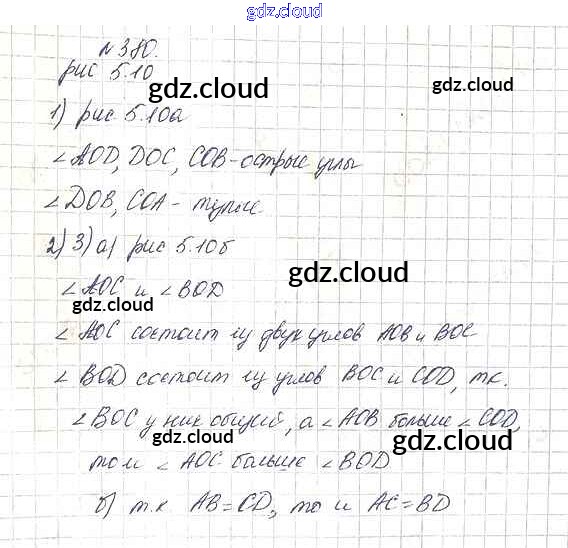 gdz.cloud
№380.
рис 5.10
gdz.cloud
1) рис. 5.10а
gdz.cloud
∠AOD, DOC, COB - острые углы
∠DOB, COA - тупые.
2) 3) а) рис 5.10б
gdz.cloud
∠AOC и ∠BOD
gdz.cloud
∠AOC состоит из двух углов AOB и BOC
∠BOD состоит из углов BOC и COD, т.к.
∠BOC у них общий, а ∠AOB больше ∠COD,
gdz.cloud
gdz.cloud
то и ∠AOC больше ∠BOD
б) т.к. AB=CD, то и AC=BD